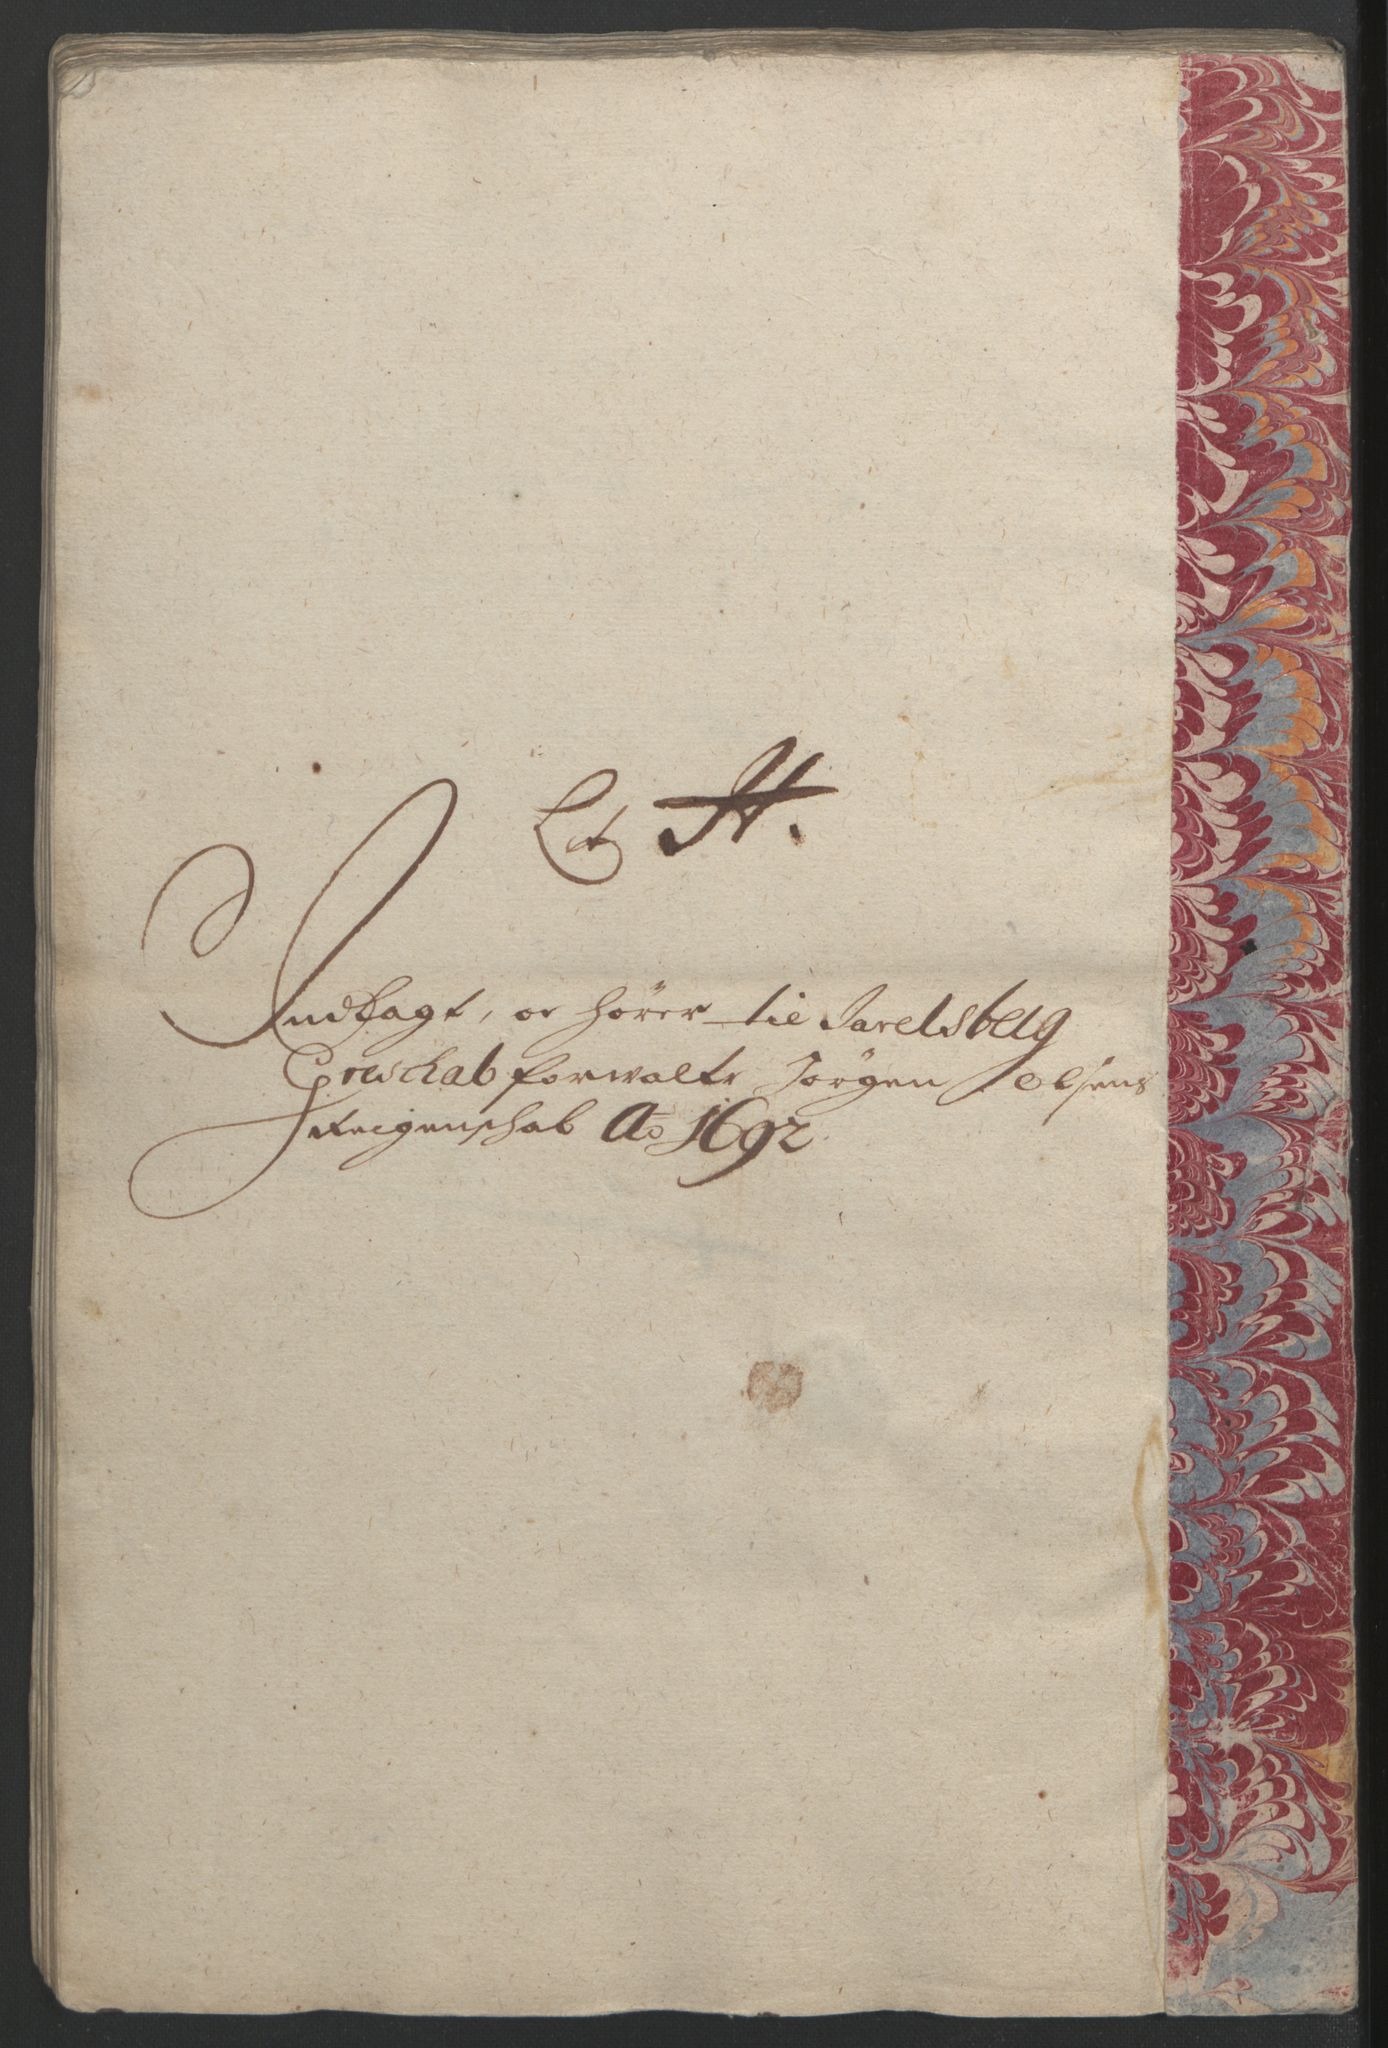 Lit H.
Indlagt, oc hörer til Jarelsberg
Grewskab forwaltr Jörgen Olsens
Reigenschab Ao 1692.